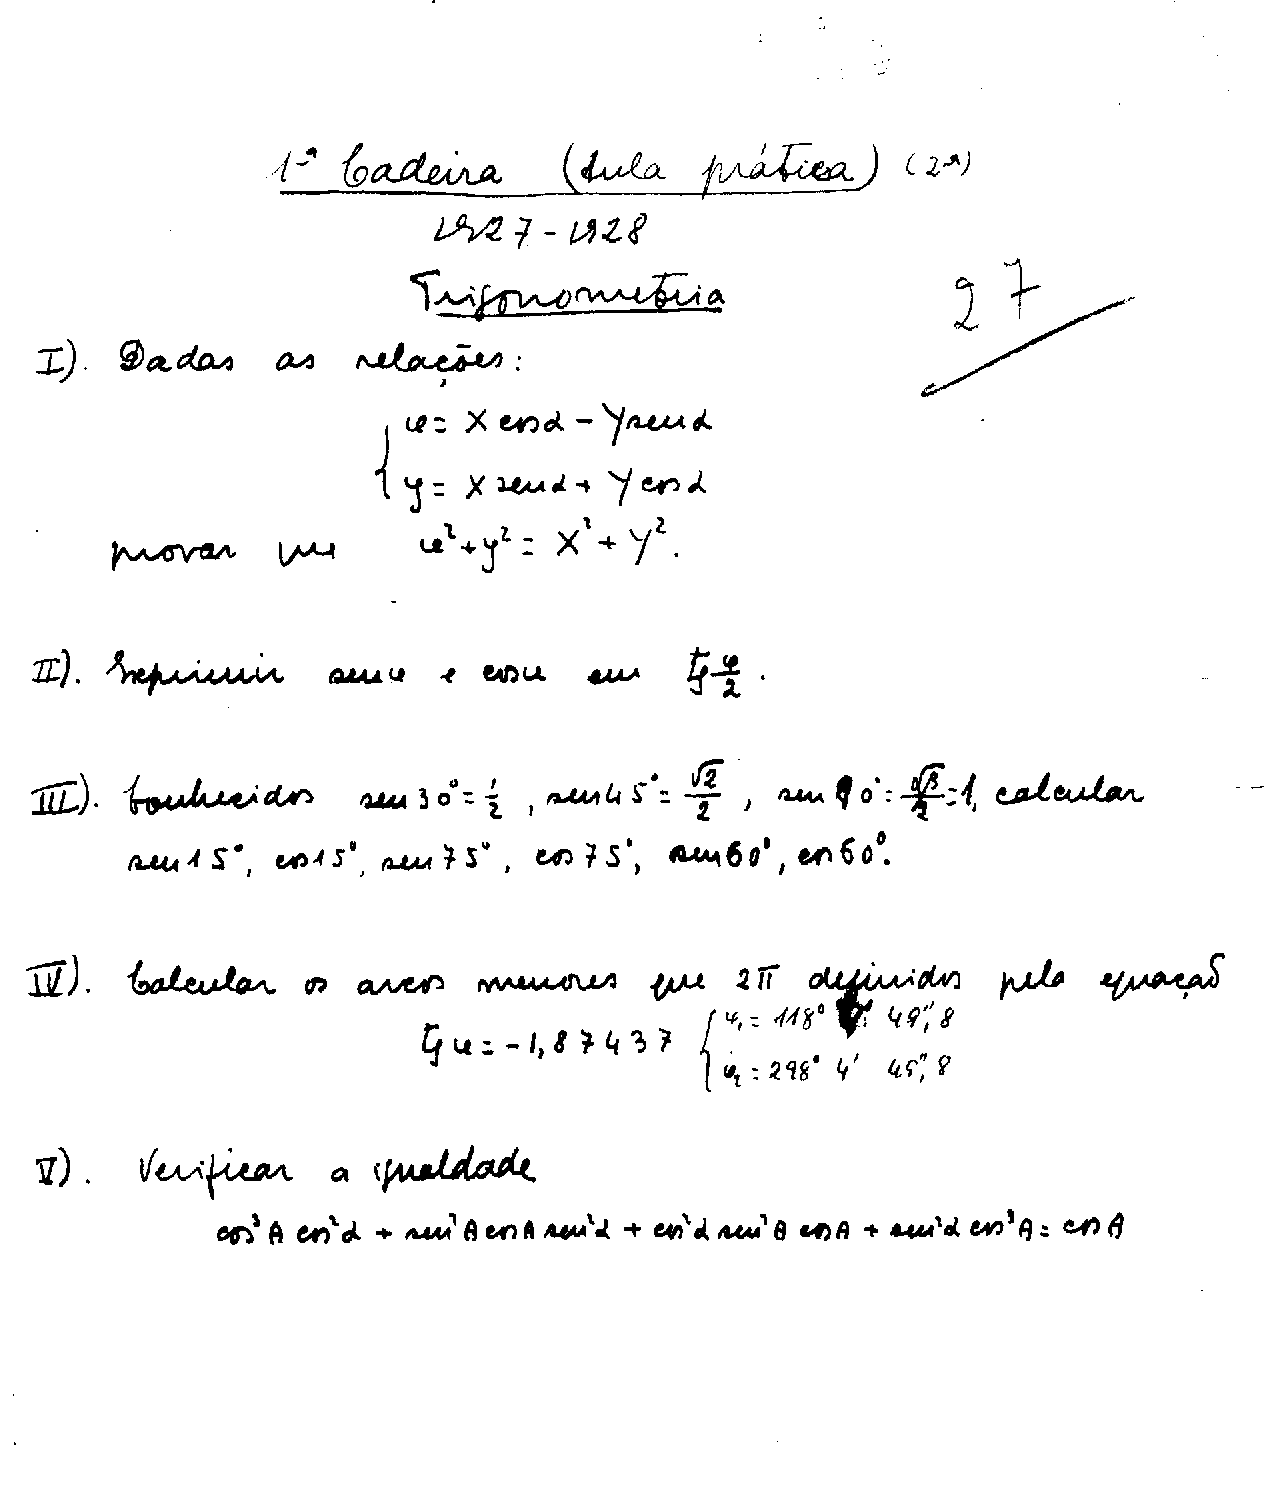 1ª Cadeira (Aula prática) (2ª)
1927-1928
Trigonometria
27
I). Dadas as relações:
x = X cosα - Y senα
y = X senα + Y cosα
provar que x² + y² = X² + Y².
II). Exprimir sen x e cos x em tg x/2.
III). Conhecidos sen 30° = 1/2, sen 45° = √2/2, sen 90° = 1, calcular
sen 15°, cos 15°, sen 75°, cos 75°, sen 60°, cos 60°.
IV). Calcular os arcos menores que 2π definidos pela equação
tg x = -1,87437 { x₁ = 118° 49",8
x₂ = 298° 4' 45",8
V). Verificar a igualdade
cos³A cos²α + sen²A cosA sen²α + cos²α sen²A cosA + sen²α cos³A = cosA